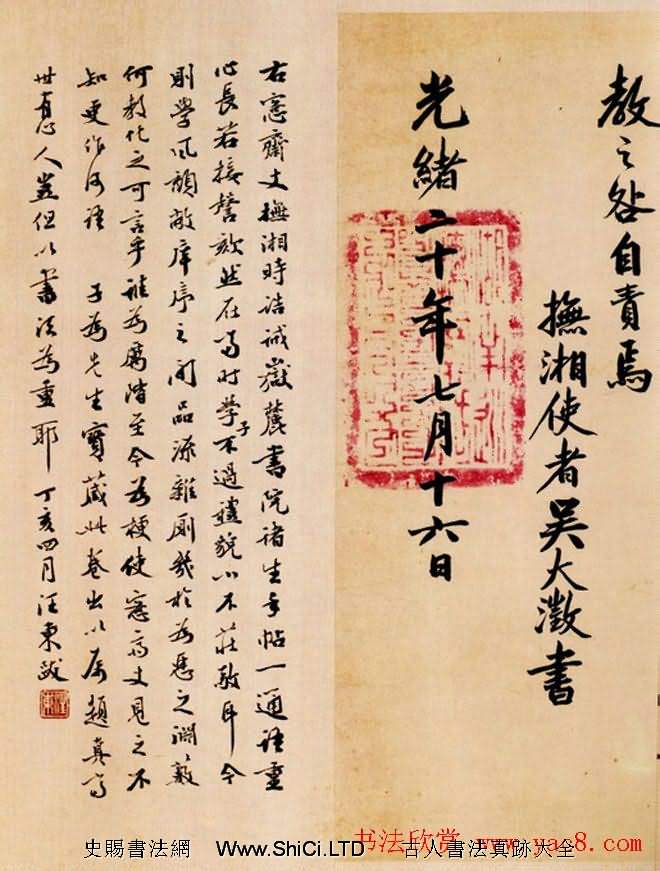 教之咎自責焉
撫湘使者吳大澂書
光緒二十年七月十六日
右愙齋丈撫湘時誥誡嶽麓書院諸生手帖一通語重
心長若接謦欬然在當時學子不過禮貌小不莊敬耳今
則學風頹敝庠序之間品流雜廁幾於為惡之淵藪
何教化之可言乎誰為厲階至今為梗使愙齋丈見之不
知更作何語 子為先生寶藏此卷出以屬題真高
世有心人豈但以書法為重耶 丁亥四月汪東跋
史賜書法網 Www.ShiCi.LTD 古人書法真跡大全
书法欣赏 www.yac8.com